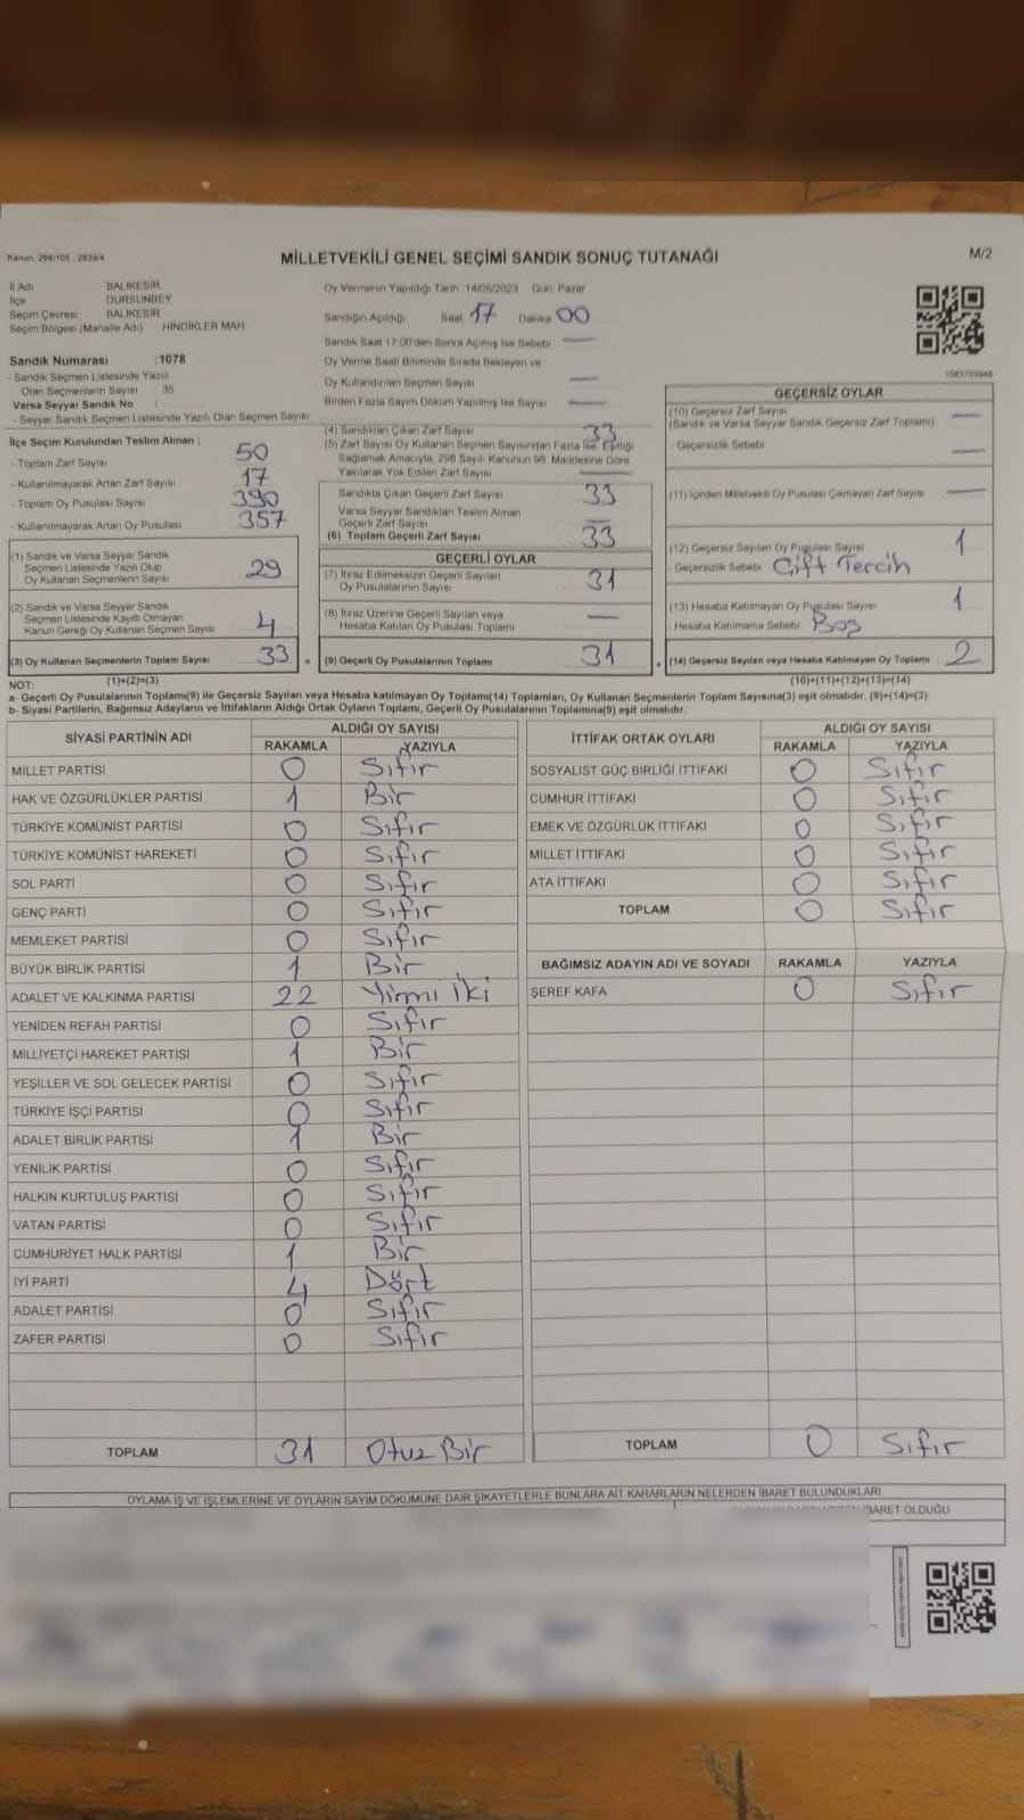 Kanun, 298/105 , 2839/4
MİLLETVEKİLİ GENEL SEÇİMİ SANDIK SONUÇ TUTANAĞI
M/2
İl Adı : BALIKESİR
İlçe : DURSUNBEY
Seçim Çevresi : BALIKESİR
Seçim Bölgesi (Mahalle Adı) : HİNDİKLER MAH.
Sandık Numarası :1078
- Sandık Seçmen Listesinde Yazılı
Olan Seçmenlerin Sayısı : 35
Varsa Seyyar Sandık No :
- Seyyar Sandık Seçmen Listesinde Yazılı Olan Seçmen Sayısı :
İlçe Seçim Kurulundan Teslim Alınan :
- Toplam Zarf Sayısı 50
- Kullanılmayarak Artan Zarf Sayısı 17
- Toplam Oy Pusulası Sayısı 390
- Kullanılmayarak Artan Oy Pusulası 357
(1) Sandık ve Varsa Seyyar Sandık
Seçmen Listesinde Yazılı Olup
Oy Kullanan Seçmenlerin Sayısı 29
(2) Sandık ve Varsa Seyyar Sandık
Seçmen Listesinde Kayıtlı Olmayan
Kanun Gereği Oy Kullanan Seçmen Sayısı 4
(3) Oy Kullanan Seçmenlerin Toplam Sayısı 33
(1)+(2)=(3)
Oy Vermenin Yapıldığı Tarih: 14/05/2023 Gün: Pazar
Sandığın Açıldığı Saat 17 Dakika 00
Sandık Saat 17:00'den Sonra Açılmış İse Sebebi —
Oy Verme Saati Bitiminde Sırada Bekleyen ve
Oy Kullandırılan Seçmen Sayısı —
Birden Fazla Sayım Döküm Yapılmış İse Sayısı —
(4) Sandıktan Çıkan Zarf Sayısı 33
(5) Zarf Sayısı Oy Kullanan Seçmen Sayısından Fazla İse, Eşitliği
Sağlamak Amacıyla, 298 Sayılı Kanunun 98. Maddesine Göre
Yakılarak Yok Edilen Zarf Sayısı —
Sandıkta Çıkan Geçerli Zarf Sayısı 33
Varsa Seyyar Sandıktan Teslim Alınan
Geçerli Zarf Sayısı —
(6) Toplam Geçerli Zarf Sayısı 33
GEÇERLİ OYLAR
(7) İtiraz Edilmeksizin Geçerli Sayılan
Oy Pusulalarının Sayısı 31
(8) İtiraz Üzerine Geçerli Sayılan veya
Hesaba Katılan Oy Pusulası Toplamı —
(9) Geçerli Oy Pusulalarının Toplamı 31
GEÇERSİZ OYLAR
(10) Geçersiz Zarf Sayısı —
(Sandık ve Varsa Seyyar Sandık Geçersiz Zarf Toplamı)
Geçersizlik Sebebi —
(11) İçinden Milletvekili Oy Pusulası Çıkmayan Zarf Sayısı —
(12) Geçersiz Sayılan Oy Pusulası Sayısı 1
Geçersizlik Sebebi Çift Tercih
(13) Hesaba Katılmayan Oy Pusulası Sayısı 1
Hesaba Katılmama Sebebi Boş
(14) Geçersiz Sayılan veya Hesaba Katılmayan Oy Toplamı 2
(10)+(11)+(12)+(13)=(14)
NOT:
a- Geçerli Oy Pusulalarının Toplamı(9) ile Geçersiz Sayılan veya Hesaba katılmayan Oy Toplamı(14) Toplamları, Oy Kullanan Seçmenlerin Toplam Sayısına(3) eşit olmalıdır. (9)+(14)=(3)
b- Siyasi Partilerin, Bağımsız Adayların ve İttifakların Aldığı Ortak Oyların Toplamı, Geçerli Oy Pusulalarının Toplamına(9) eşit olmalıdır.
SİYASİ PARTİNİN ADI ALDIĞI OY SAYISI
RAKAMLA YAZIYLA
MİLLET PARTİSİ 0 Sıfır
HAK VE ÖZGÜRLÜKLER PARTİSİ 1 Bir
TÜRKİYE KOMÜNİST PARTİSİ 0 Sıfır
TÜRKİYE KOMÜNİST HAREKETİ 0 Sıfır
SOL PARTİ 0 Sıfır
GENÇ PARTİ 0 Sıfır
MEMLEKET PARTİSİ 0 Sıfır
BÜYÜK BİRLİK PARTİSİ 1 Bir
ADALET VE KALKINMA PARTİSİ 22 Yirmi iki
YENİDEN REFAH PARTİSİ 0 Sıfır
MİLLİYETÇİ HAREKET PARTİSİ 1 Bir
YEŞİLLER VE SOL GELECEK PARTİSİ 0 Sıfır
TÜRKİYE İŞÇİ PARTİSİ 0 Sıfır
ADALET BİRLİK PARTİSİ 1 Bir
YENİLİK PARTİSİ 0 Sıfır
HALKIN KURTULUŞ PARTİSİ 0 Sıfır
VATAN PARTİSİ 0 Sıfır
CUMHURİYET HALK PARTİSİ 1 Bir
İYİ PARTİ 4 Dört
ADALET PARTİSİ 0 Sıfır
ZAFER PARTİSİ 0 Sıfır
TOPLAM 31 Otuz Bir
İTTİFAK ORTAK OYLARI ALDIĞI OY SAYISI
RAKAMLA YAZIYLA
SOSYALİST GÜÇ BİRLİĞİ İTTİFAKI 0 Sıfır
CUMHUR İTTİFAKI 0 Sıfır
EMEK VE ÖZGÜRLÜK İTTİFAKI 0 Sıfır
MİLLET İTTİFAKI 0 Sıfır
ATA İTTİFAKI 0 Sıfır
TOPLAM 0 Sıfır
BAĞIMSIZ ADAYIN ADI VE SOYADI RAKAMLA YAZIYLA
ŞEREF KAFA 0 Sıfır
TOPLAM 0 Sıfır
OYLAMA İŞ VE İŞLEMLERİNE VE OYLARIN SAYIM DÖKÜMÜNE DAİR ŞİKAYETLERLE BUNLARA AİT KARARLARIN NELERDEN İBARET BULUNDUKLARI
İBARET OLDUĞU